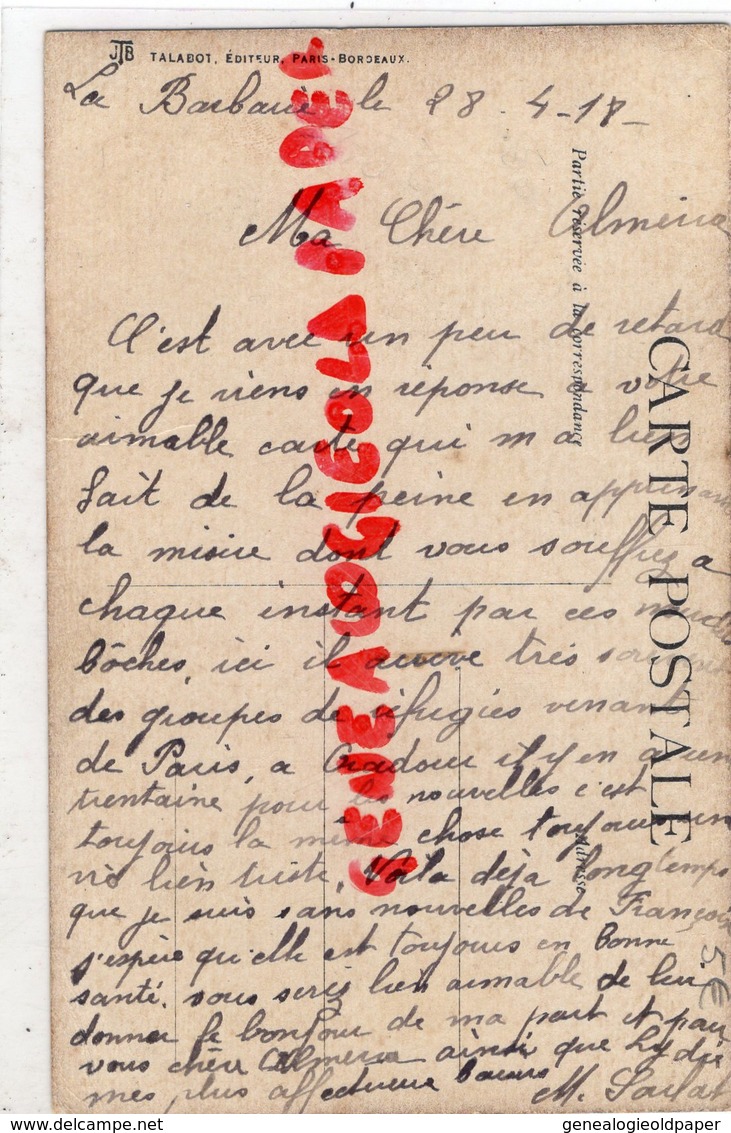 JTB TALABOT, ÉDITEUR, PARIS-BORDEAUX.
La Barbarie le 28-4-18-
Ma Chère Almeria
C'est avec un peu de retard
que je viens en réponse a votre
aimable carte qui m a bien
fait de la peine en apprenant
la misire dont vous souffrez a
chaque instant par ces maudits
bôches, ici il arrive très souvent
des groupes de réfugiés venant
de Paris, a Oradour il y en a un
trentaine pour les nouvelles c'est
toujours la même chose toujours un
vie bien triste, Voila déja longtemps
que je suis sans nouvelles de François
j'espère qu'elle est toujours en bonne
santé. vous serès bien aimable de leur
donner le bonjour de ma part et pour
vous chère Almeria ainsi que Lydie
mes plus affectueux baisers
M. Sarlat
CARTE POSTALE
Partie réservée à la correspondance
Adresse
GENEALOGIEOLDPAPER
5 €
genealogieoldpaper